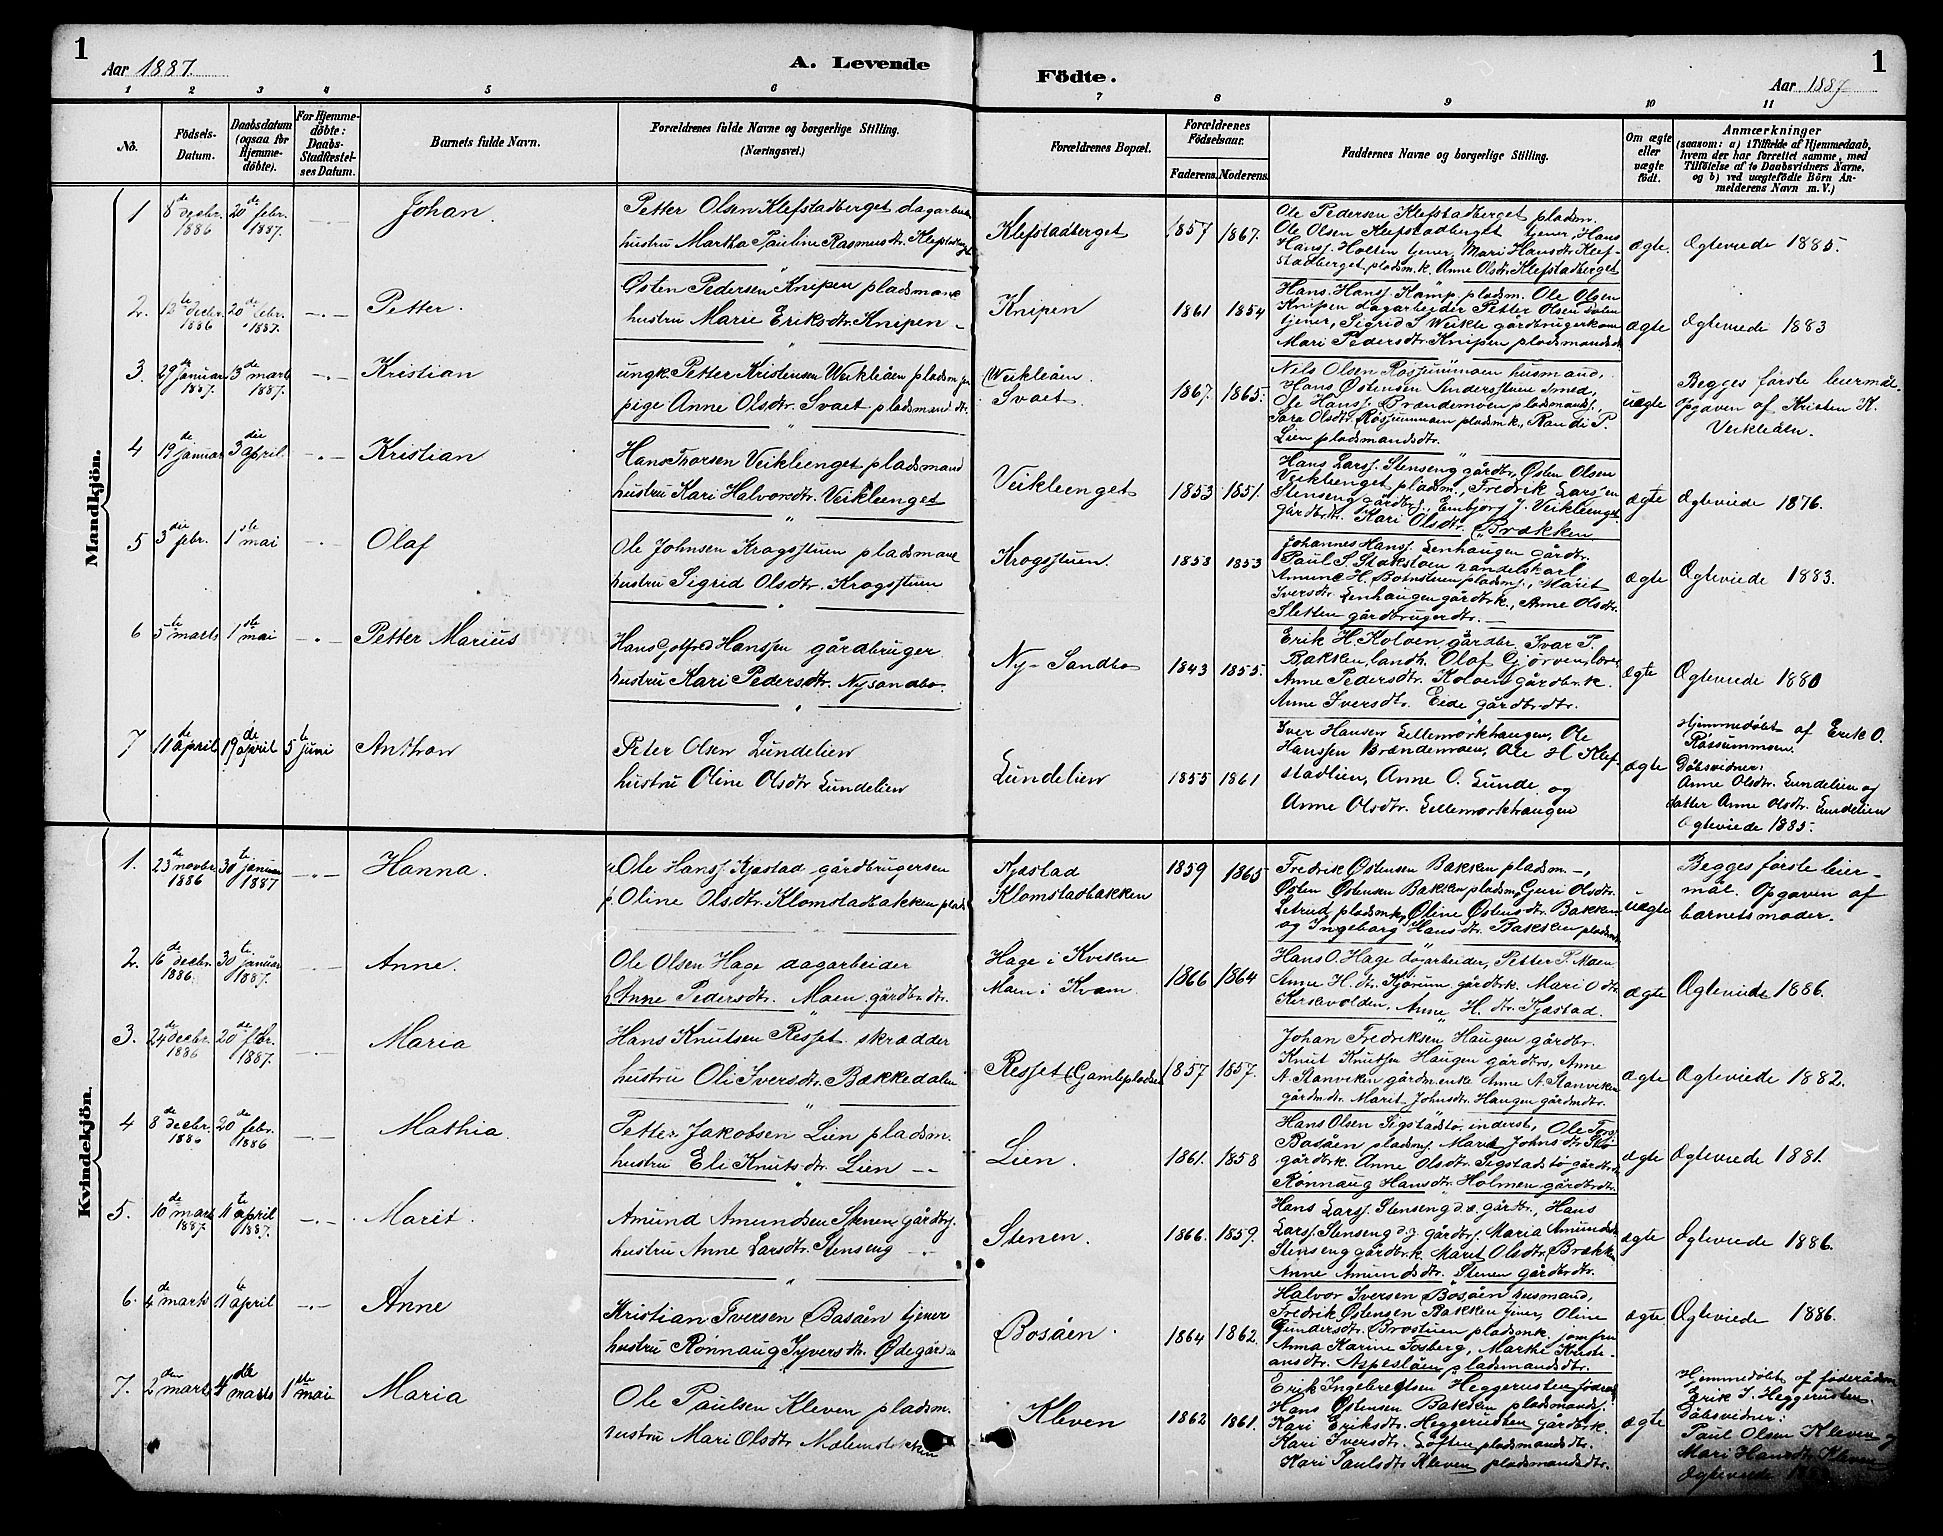 1
Aar 1887.
A. Levende
Födte.
Aar 1887
1
1 2 3 4 5 6 7 8 9 10 11
No.
Födsels-
Datum.
Daabsdatum
(ogsaa for
Hjemme-
döbte).
For Hjemme-
döbte:
Daabs-
Stadfæstel-
ses Datum.
Barnets fulde Navn.
Forældrenes fulde Navne og borgerlige Stilling.
(Næringsvei.)
Forældrenes Bopæl.
Forældrenes
Födselsaar.
Faderens. Moderens.
Faddernes Navne og borgerlige Stilling.
Om ægte
eller
uægte
födt.
Anmærkninger
(saasom: a) i Tilfælde af Hjemmedaab,
hvem der har forrettet samme, med
Tilföielse af to Daabsvidners Navne,
og b) ved uægtefödte Börn An-
melderens Navn m. V.)
Mandkjön.
1 8de decbr. 1886 20de febr. 1887. Johan.
Petter Olsen Klefstadberget
hustru Martha Pauline Rasmusdtr. Klefstadberget
Klefstadberget 1857 1867.
Ole Pedersen Klefstadberget pladsm.
Ole Olsen Klefstadberget tjener, Hans
Hansj. Holten tjener, Mari Hansdtr. Klef-
stadberget pladsm.k. Anne Olsdtr. Klefstadberget
ægte. Ægteviede 1885.
2. 13te decbr. 1886 20de febr. 1887. Petter.
Østen Pedersen Knipen pladsmand
hustru Marie Eriksdtr. Knipen
Knipen 1861 1854
Hans Hansj. Kamp pladsm. Ole Olsen
Knipen dagarbeider Petter Olsen
tjener, Sigrid S. Weikle gårdbrugerkone
Mari Pedersdtr. Knipen pladsmandsdtr.
ægte Ægteviede 1883
3. 29de januar 1887. 13de marts 1887. Kristian
ungk. Petter Kristensen Weikleåen
pige Anne Olsdtr. Svaet pladsmandsdtr.
Weikleåen.
Svaet. 1867. 1865.
Nils Olsen Røsjummoen husmand,
Hans Østensen Andersstuen smed,
Ole Hansj. Brændemoen pladsmandsj.
Sara Olsdtr. Røsjummoen pladsm.k., Randi P.
Lien pladsmandsdtr.
uægte Begges første leiermål.
Opgaven af Kristen K.
Veikleåen.
4 19de januar 3die april. Kristian
Hans Thorsen Veikleenget pladsmand
hustru Kari Halvorsdtr. Veikleenget
Veikleenget 1853 1851.
Hans Larsj. Stenseng gårdbr., Østen Olsen
Veikleenget pladsm., Fredrik Larssen
Stenseng gårdbrj., Embjørg J. Veikleenget
gårdbr.dtr. Kari Olsdtr. Brækken
ægte Ægteviede 1876.
5 3die febr. 1ste mai Olaf
Ole Johnsen Krogsstuen pladsmand
hustru Sigrid Olsdtr. Krogsstuen
Krogsstuen. 1858 1853
Johannes Hansj. Lenhaugen gårdbr.
Paul S. Stokstoen handelskarl
Amund H. Botnstuen pladsmj., Marit
Iversdtr. Lenhaugen gårdbr.k., Anne Olsdtr.
Sletten gårdbrugerdtr.
ægte Ægteviede 1883.
6 5te marts 1ste mai Petter Marius
Hans Gotfred Hanssen gårdbruger
hustru Kari Pedersdtr. Nysandbo.
Ny-Sandbo 1843 1855.
Erik H. Kolven gårdbr. Ivar P.
Bakken, landh. Olaf Gjørven,
Anne Pedersdtr. Kolven gårdbr.k.
Anne Iversdtr. Eide gårdbr.dtr.
ægte Ægteviede 1880
7 11de april 19de april 5te juni Anthon
Peter Olsen Lundelien
hustru Oline Olsdtr Lundelien
Lundelien 1855 1861
Iver Hansen Lillemorkhaugen, Ole
Hanssen Brændemoen, Ole H Klef-
stadlien, Anne O. Lunde og
Anne Olsdtr. Lillemorkhaugen
ægte Hjemmedøbt af Erik O.
Røssummoen.
Dåbsvidner:
Anne Olsdtr. Lundelien og
datter Anne Olsdtr. Lundelien
Ægteviede 1885.
Kvindekjön.
1. 23de novbr. 1886 30te januar 1887 Hanna.
Ole Hansj. Kjæstad gårdbrugersøn
p. Oline Olsdtr. Klomstadbakken
Kjæstad
Klomstadbakken 1859 1865
Fredrik Østensen Bakken pladsm.
Østen Østensen Bakken pladsm, Guri Olsdtr.
Letrud pladsm.k., Oline Østensdtr. Bakken
og Ingeborg Hansdtr. Bakken
uægte Begges første leier-
mål. Opgaven af
barnets moder.
2. 16de decbr. 1886. 30te januar 1887. Anne.
Ole Olsen Hage dagarbeider
h. Anne Pedersdtr. Moen gårdbr.dtr.
Hage i Kvikne
Moen i Kvam 1866 1864
Hans O. Hage dagarbeider, Petter P. Moen
Anne H. dtr. Kjørum gårdbr.k. Mari O dtr.
Anne H. dtr. Kjæstad.
ægte Ægteviede 1886.
3. 24de decbr. 1886 20de febr. 1887. Maria
Hans Knutsen Resset skrædder
hustru Oli Iversdtr. Bækkedalen
Resset (Gamlepladsen 1857 1857.
Johan Fredriksen Haugen gårdbr.
Knut Knutsen Haugen gårdbrs, Anne
A. Stanviken gårdm.enke Anne A. Stanviken
gårdm.dtr. Marit Johnsdtr. Haugen gårdm.dtr.
ægte Ægteviede 1882.
4 8de decbr. 1886 20de febr. 1886 Mathia.
Petter Jakobsen Lien pladsm.
hustru Eli Knutsdtr. Lien
Lien. 1861. 1858
Hans Olsen Sigstadstø inderst, Ole
Bosåen pladsmj Mari Johnsdtr.
gårdbr.k. Anne Olsdtr. Sigstadstø gårdbr.dtr
Rønnaug Hansdtr. Holmen gårdbr.dtr.
ægte Ægteviede 1881.
5. 10de mart 1887. 11te april 1887. Marit.
Amund Amundsen Stenen gårdbrj.
hustru Anne Larsdtr. Stenseng
Stenen. 1866. 1859.
Hans Larsj. Stenseng d.æ. gårdbr., Hans
Larsj. Stenseng d.y. gårdbrj. Maria Amundsdtr.
Stenseng gårdbr.k. Marit Olsdtr. Brækken
Anne Amundsdtr. Stenen gårdbr.dtr.
ægte Ægteviede 1886.
6. 4de marts 11te april Anne
Kristian Iversen Basåen tjener
hustru Rønnaug Syversdtr. Ødegården
Bosåen. 1864 1862.
Halvor Iversen Bosåen husmand,
Fredrik Østensen Bakken tjener, Oline
Gundersdtr. Brostuen pladsm.k. jomfru
Anna Karine Fosberg, Marthe Kristi-
ansdtr. Aspeslåen pladsmandsdtr.
ægte. Ægteviede 1886.
7. 2den marts 4de marts 1ste mai Maria
Ole Paulsen Kleven pladsm.
hustru Mari Olsdtr
Kleven 1862 1861.
Erik Ingebretsen Heggerusten
Hans Østensen Bakken pladsmandsj.
Kari Eriksdtr. Heggerusten gårdbr.k.
Kari Iversdtr. Loften pladsmandsdtr.
Kari Paulsdtr Kleven pladsmandsdtr.
ægte Hjemmedøbt af føderådsm
Erik I. Heggerusten.
Dåbsvidner:
Paul Olsen Kleven og
Mari Hansdtr. Kleven
Ægteviede